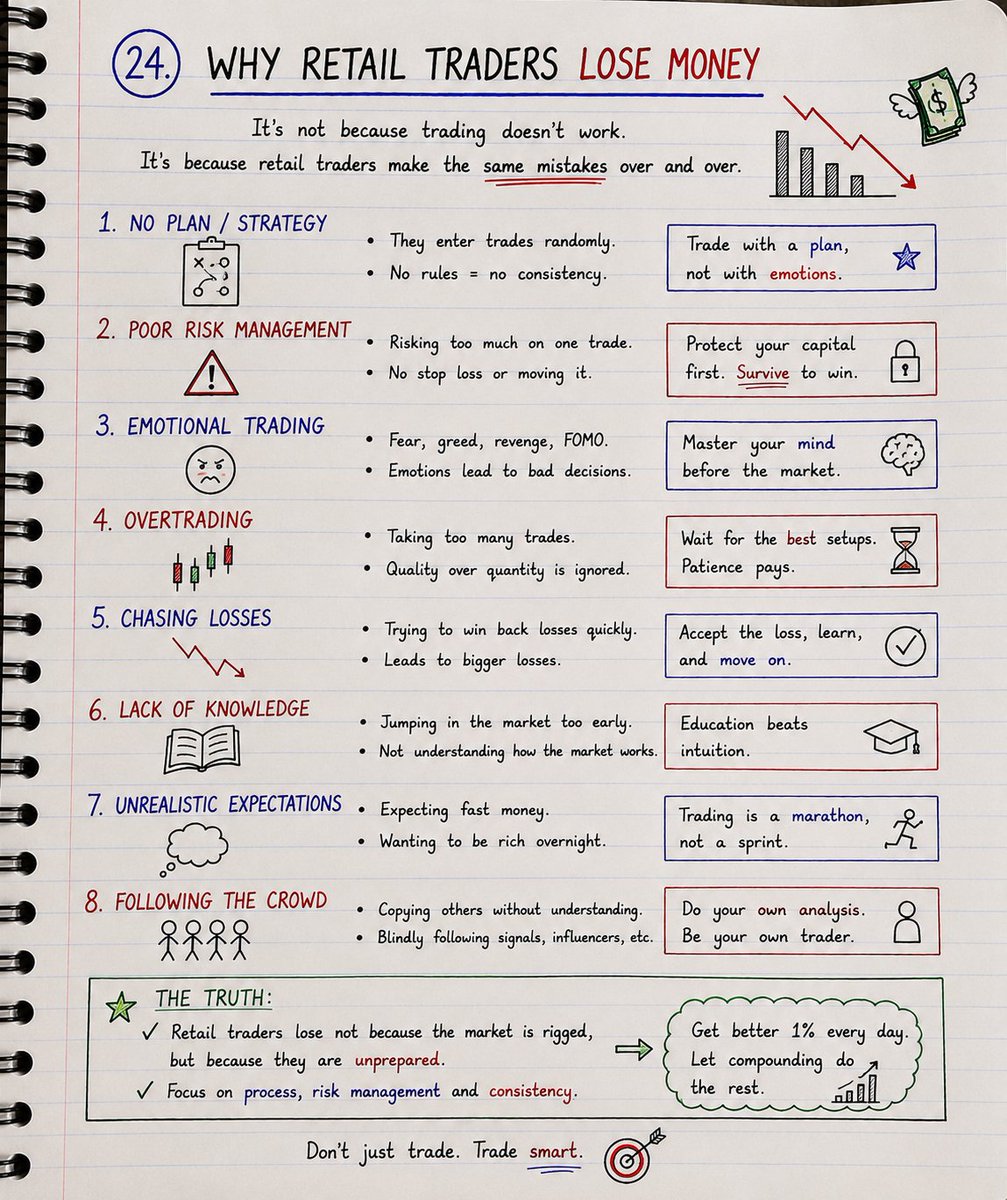 24. WHY RETAIL TRADERS LOSE MONEY
It's not because trading doesn't work.
It's because retail traders make the same mistakes over and over.
$
1. NO PLAN / STRATEGY
• They enter trades randomly.
• No rules = no consistency.
Trade with a plan,
not with emotions.
2. POOR RISK MANAGEMENT
!
• Risking too much on one trade.
• No stop loss or moving it.
Protect your capital
first. Survive to win.
3. EMOTIONAL TRADING
• Fear, greed, revenge, FOMO.
• Emotions lead to bad decisions.
Master your mind
before the market.
4. OVERTRADING
• Taking too many trades.
• Quality over quantity is ignored.
Wait for the best setups.
Patience pays.
5. CHASING LOSSES
• Trying to win back losses quickly.
• Leads to bigger losses.
Accept the loss, learn,
and move on.
6. LACK OF KNOWLEDGE
• Jumping in the market too early.
• Not understanding how the market works.
Education beats
intuition.
7. UNREALISTIC EXPECTATIONS
• Expecting fast money.
• Wanting to be rich overnight.
Trading is a marathon,
not a sprint.
8. FOLLOWING THE CROWD
• Copying others without understanding.
• Blindly following signals, influencers, etc.
Do your own analysis.
Be your own trader.
THE TRUTH:
✓ Retail traders lose not because the market is rigged,
but because they are unprepared.
✓ Focus on process, risk management and consistency.
Get better 1% every day.
Let compounding do
the rest.
Don't just trade. Trade smart.